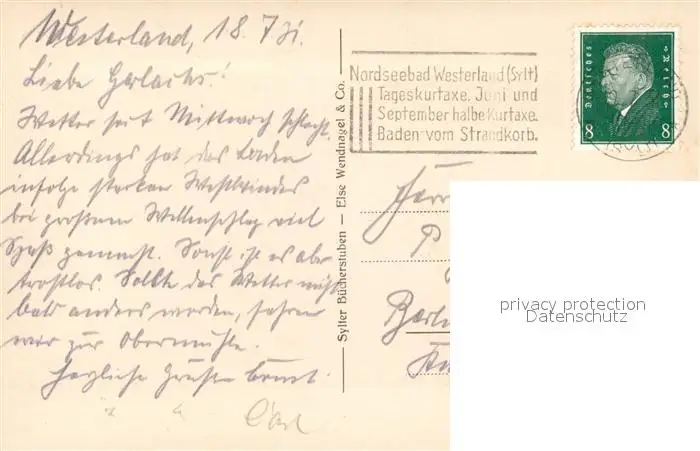 Westerland, 18. 7. 31.
Liebe Gerlachs!
Wetter seit Mittwoch schlecht.
Allerdings hat das Baden
infolge starken Westwindes
bei großem Wellenschlag viel
Spaß gemacht. Sonst ist es aber
trostlos. Sollte das Wetter nicht
bald anders werden, fahren
wir zur Obermühle.
Herzliche Grüße
Sylter Bücherstuben — Else Wendnagel & Co.
Nordseebad Westerland (Sylt)
Tageskurtaxe. Juni und
September halbe Kurtaxe.
Baden vom Strandkorb.
Deutsches Reich
8 8
Herrn
P
Berlin
privacy protection
Datenschutz